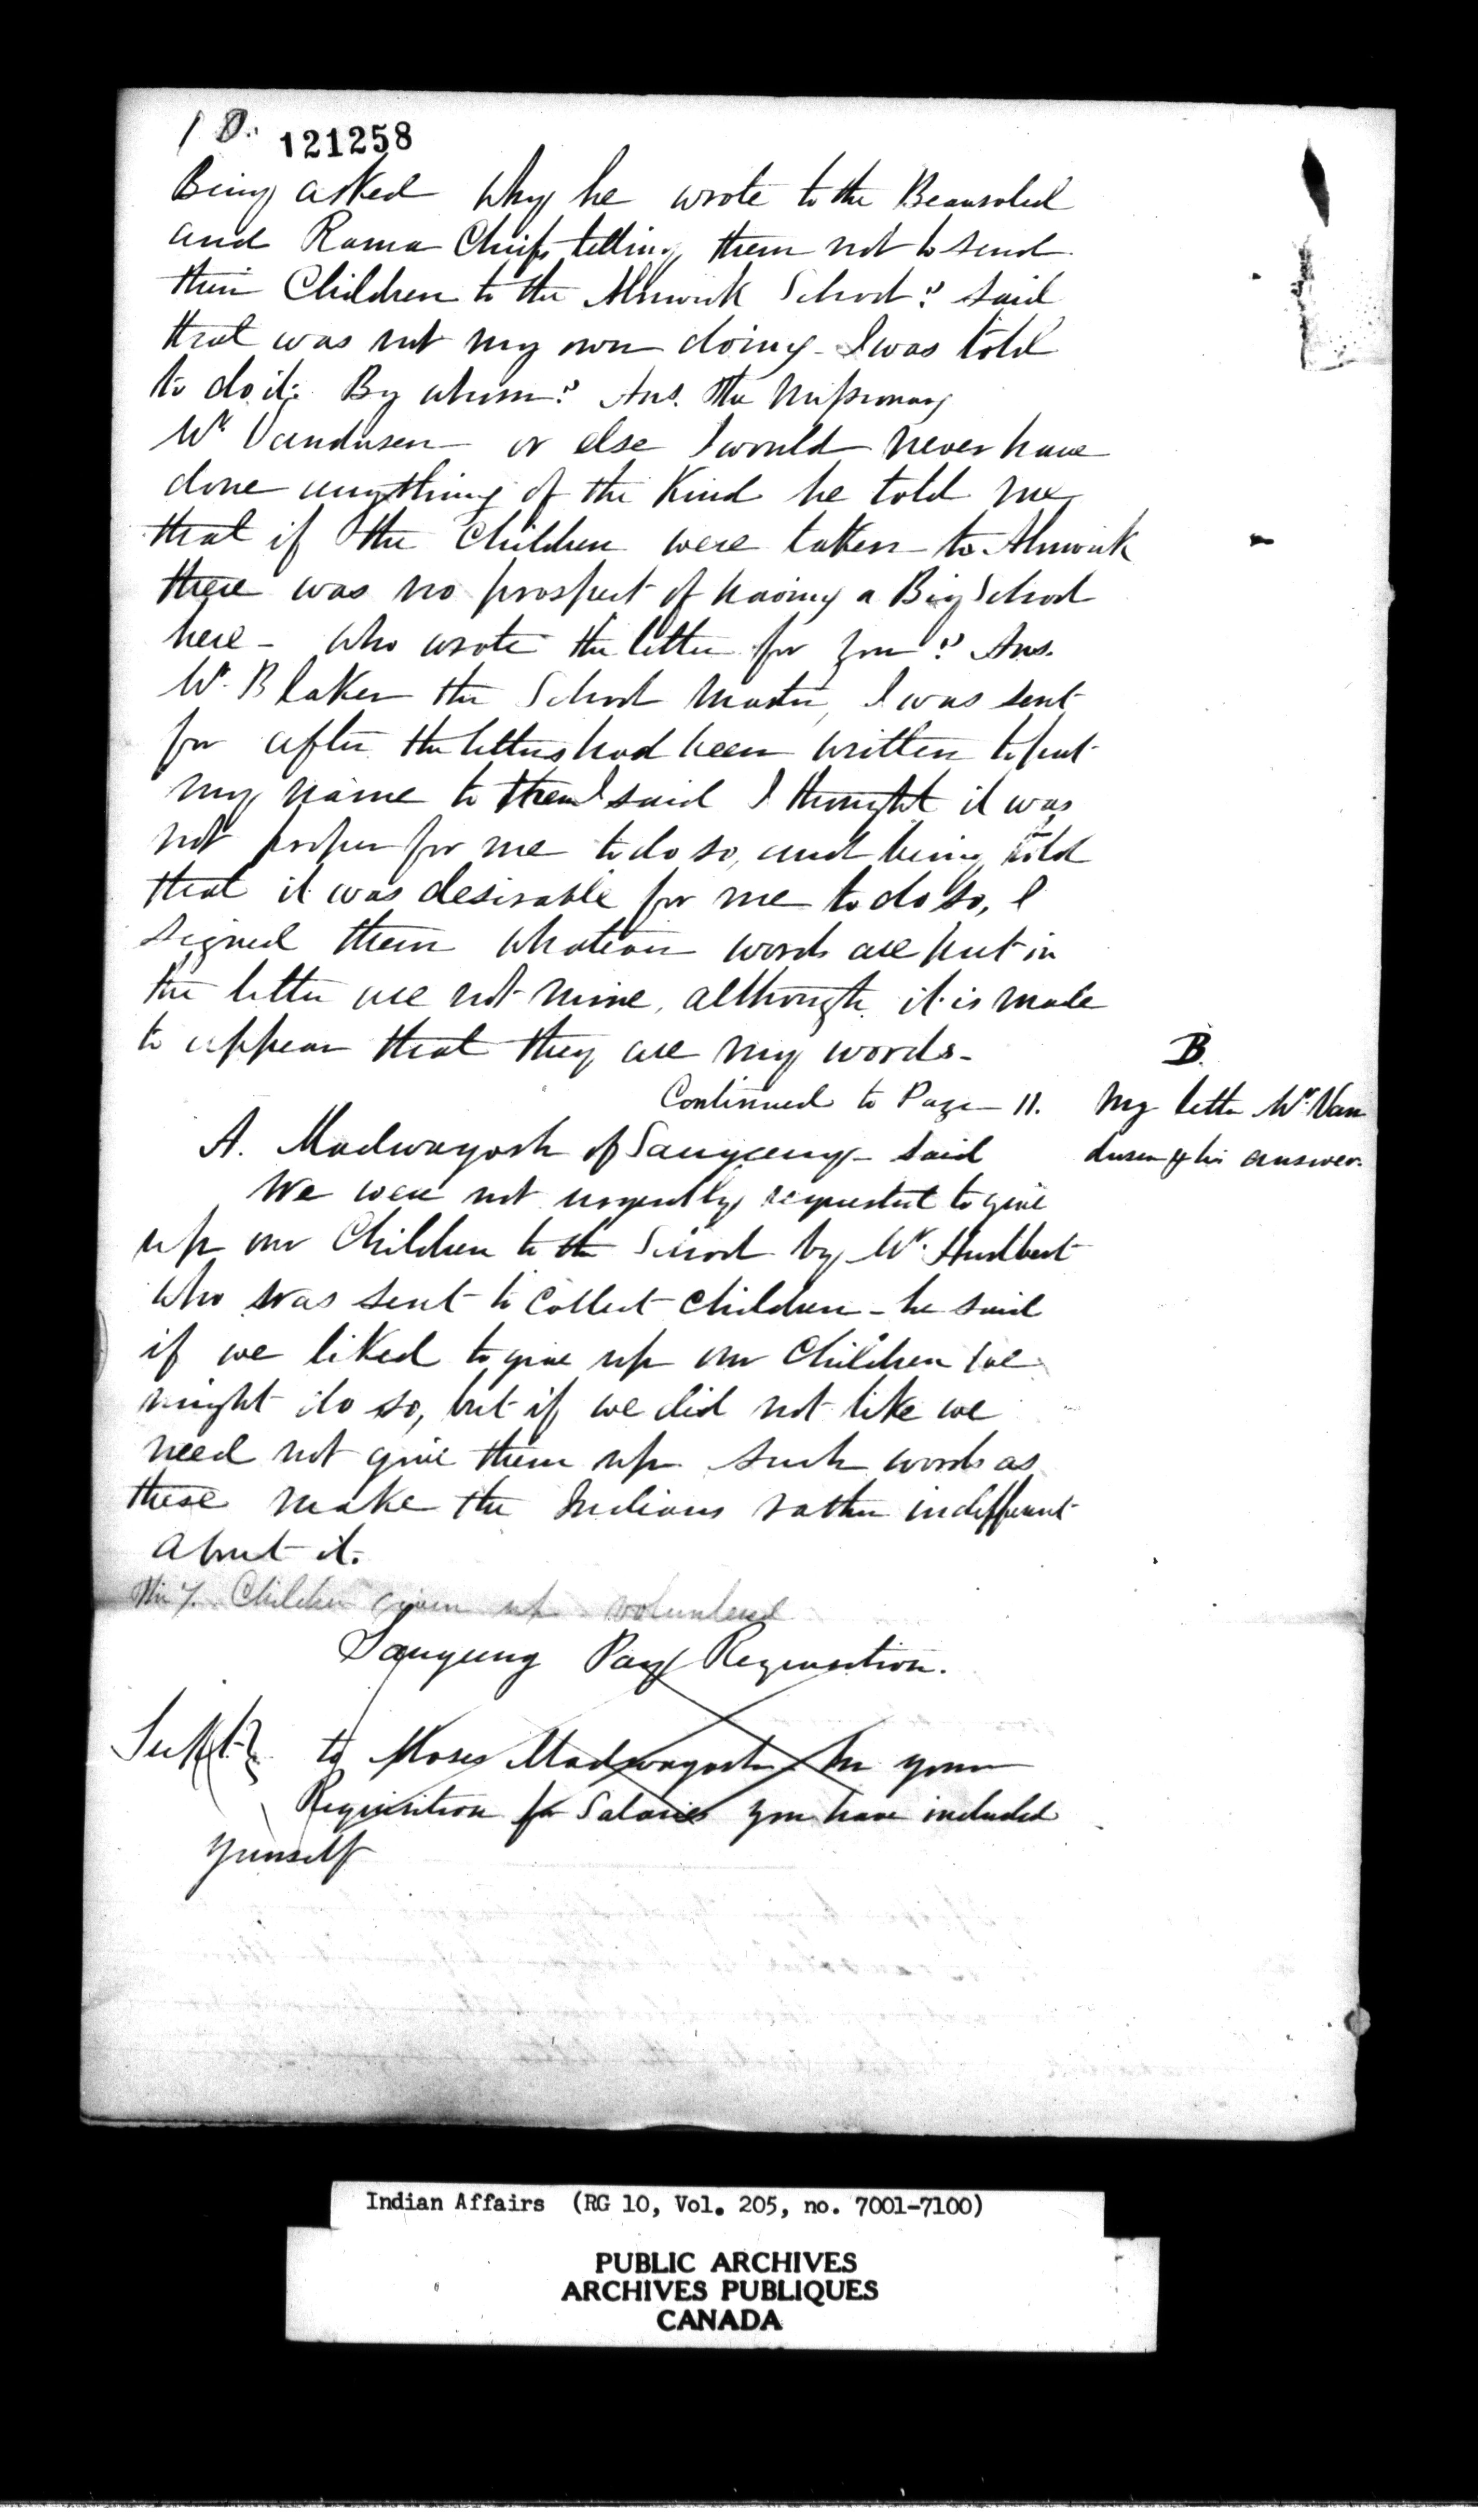 10. 121258
Being asked why he wrote to the Beausoleil
and Rama Chiefs telling them not to send
their Children to the Alnwick School? said
that was not my own doing - I was told
to do it. By whom? Ans. the Missionary
Mr Vandusen - or else I would never have
done anything of the Kind he told me
that if the Children were taken to Alnwick
there was no prospect of having a Big School
here - who wrote the letter for you? Ans.
Mr. Blaker the School Master, I was sent
for after the letters had been written to put
my name to them I said I thought it was
not proper for me to do so, and being told
that it was desirable for me to do so, I
signed them whatever words are put in
the letter are not mine, although it is made
to appear that they are my words -
Continued to Page 11.
B.
My letter Mr. Van
dusen & his answer.
A. Madwayosh of Saugeeng - said
We were not urgently requested to give
up our Children to the School by Mr. Hurlburt
who was sent to Collect Children - he said
if we liked to give up our Children we
might do so, but if we did not like we
need not give them up such words as
these make the Indians rather indifferent
about it.
Children given up
Saugeeng Pay Requisition.
Supt. to Moses Madwayosh - In your
Requisition for Salaries you have included
yourself
Indian Affairs (RG 10, Vol. 205, no. 7001-7100)
PUBLIC ARCHIVES
ARCHIVES PUBLIQUES
CANADA